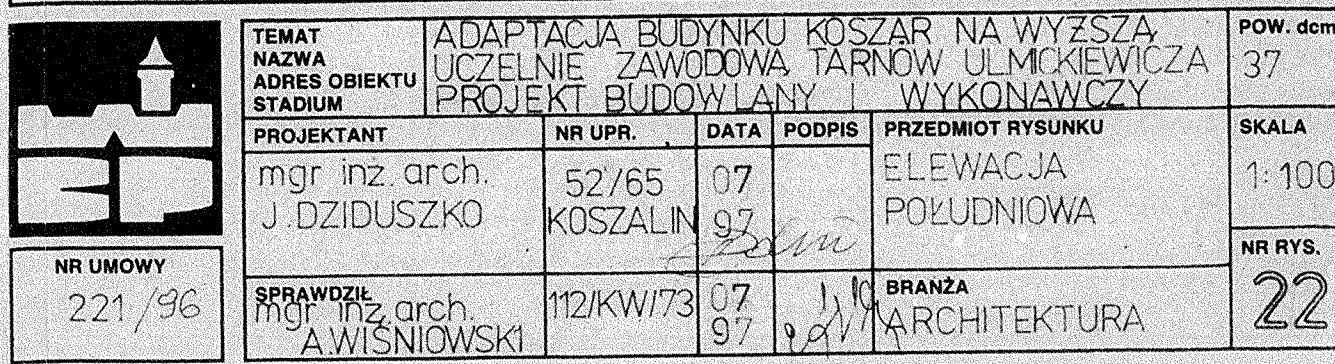 TEMAT
NAZWA
ADRES OBIEKTU
STADIUM
ADAPTACJA BUDYNKU KOSZAR NA WYŻSZĄ
UCZELNIE ZAWODOWĄ TARNÓW UL.MICKIEWICZA
PROJEKT BUDOWLANY I WYKONAWCZY
POW. dcm
37
PROJEKTANT
mgr inż. arch.
J.DZIDUSZKO
NR UPR.
52/65
KOSZALIN
DATA
07
97
PODPIS
PRZEDMIOT RYSUNKU
ELEWACJA
POŁUDNIOWA
SKALA
1:100
NR UMOWY
221/96
SPRAWDZIŁ
mgr inż. arch.
A.WIŚNIOWSKI
112/KW/73
07
97
BRANŻA
ARCHITEKTURA
NR RYS.
22